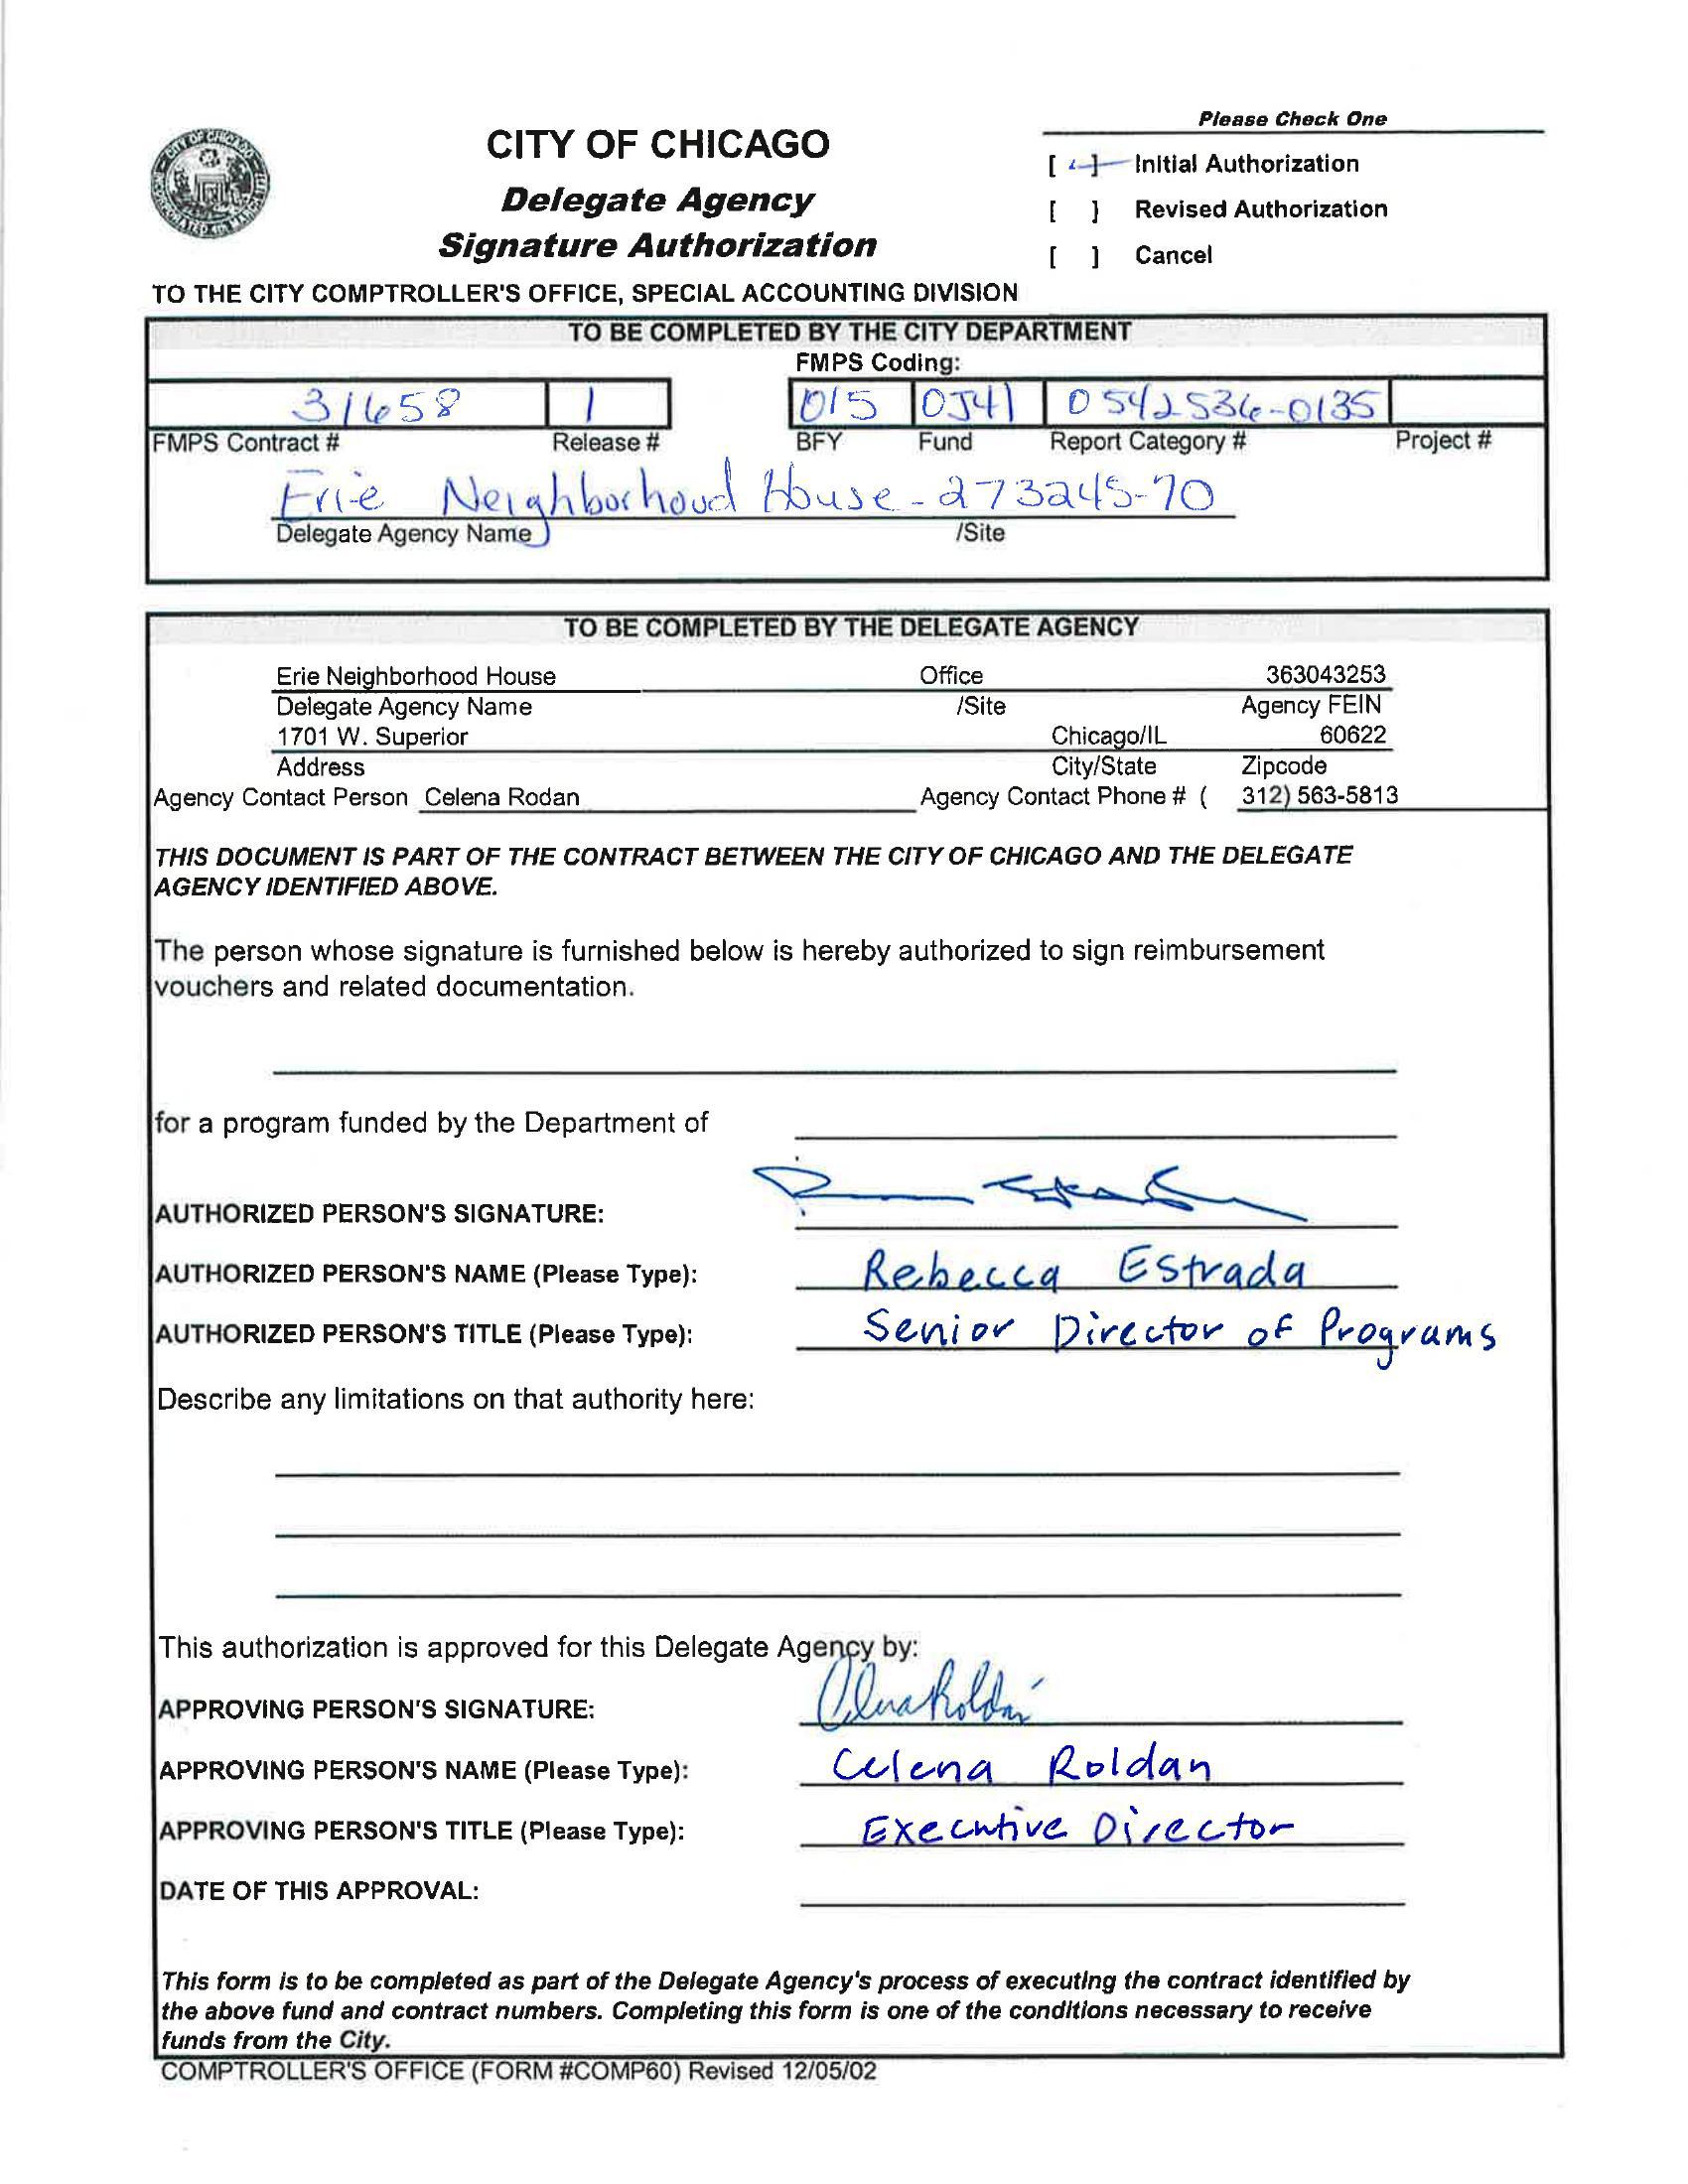 Please Check One
CITY OF CHICAGO
Delegate Agency
Signature Authorization
[ ✓ ] Initial Authorization
[ ] Revised Authorization
[ ] Cancel
TO THE CITY COMPTROLLER'S OFFICE, SPECIAL ACCOUNTING DIVISION
TO BE COMPLETED BY THE CITY DEPARTMENT
FMPS Coding:
31658 1 015 0J41 0542536-0135
FMPS Contract # Release # BFY Fund Report Category # Project #
Erie Neighborhood House - 273245-70
Delegate Agency Name /Site
TO BE COMPLETED BY THE DELEGATE AGENCY
Erie Neighborhood House Office 363043253
Delegate Agency Name /Site Agency FEIN
1701 W. Superior Chicago/IL 60622
Address City/State Zipcode
Agency Contact Person Celena Rodan Agency Contact Phone # ( 312) 563-5813
THIS DOCUMENT IS PART OF THE CONTRACT BETWEEN THE CITY OF CHICAGO AND THE DELEGATE
AGENCY IDENTIFIED ABOVE.
The person whose signature is furnished below is hereby authorized to sign reimbursement
vouchers and related documentation.
for a program funded by the Department of
AUTHORIZED PERSON'S SIGNATURE:
AUTHORIZED PERSON'S NAME (Please Type): Rebecca Estrada
AUTHORIZED PERSON'S TITLE (Please Type): Senior Director of Programs
Describe any limitations on that authority here:
This authorization is approved for this Delegate Agency by:
APPROVING PERSON'S SIGNATURE: Celena Roldán
APPROVING PERSON'S NAME (Please Type): Celena Roldan
APPROVING PERSON'S TITLE (Please Type): Executive Director
DATE OF THIS APPROVAL:
This form is to be completed as part of the Delegate Agency's process of executing the contract identified by
the above fund and contract numbers. Completing this form is one of the conditions necessary to receive
funds from the City.
COMPTROLLER'S OFFICE (FORM #COMP60) Revised 12/05/02